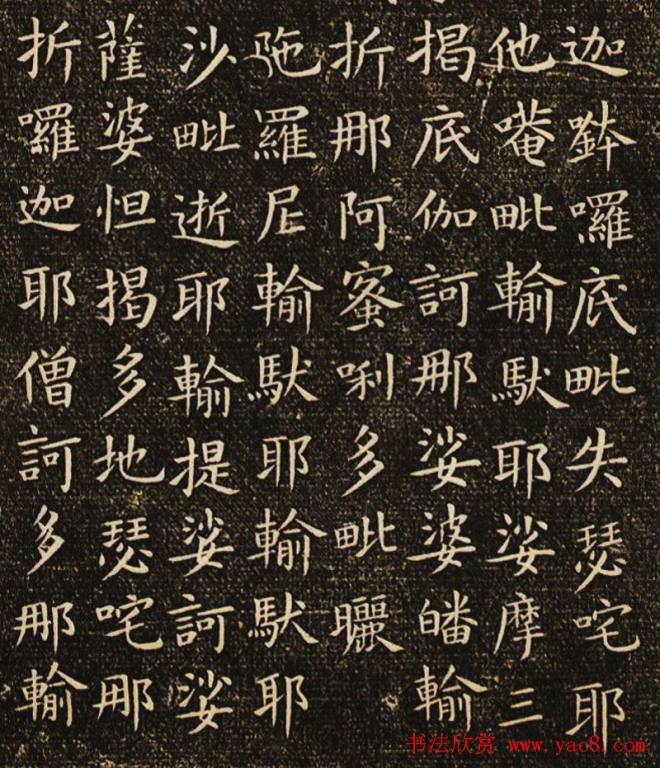 迦鉢囉底毗失瑟咤耶
他唵毗輸馱耶娑摩三
揭底伽訶那娑婆皤輸
折那阿蜜唎多毗曬
陁羅尼輸馱耶輸馱耶
沙毗逝耶輸提娑訶娑
薩婆怛揭多地瑟咤那
折囉迦耶僧訶多那輸
书法欣赏 www.yao8.com